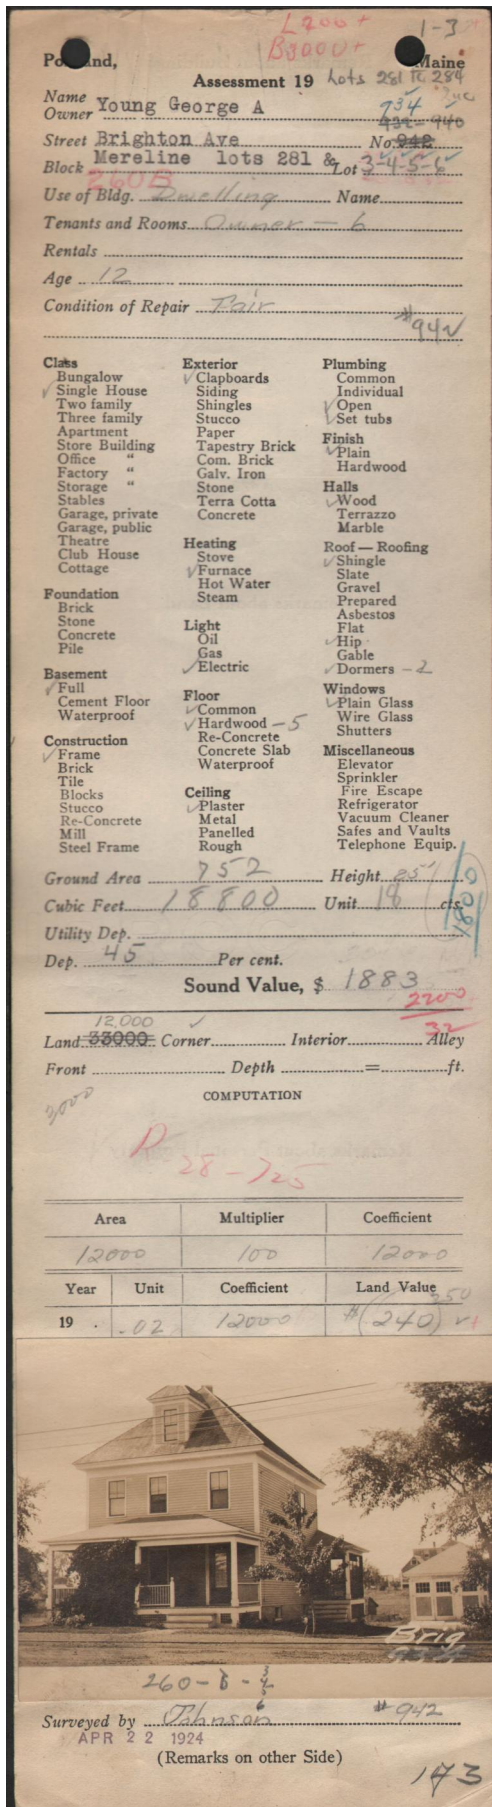 L200+ 1-3
B3000+
Portland, Maine
Assessment 19 Lots 281 to 284
Name Owner Young George A 934
932-940
Street Brighton Ave No. 942
Block Mereline lots 281 & Lot 3-4-5-6
260B
Use of Bldg. Dwelling Name
Tenants and Rooms Owner - 6
Rentals
Age 12
Condition of Repair Fair
#942
Class
Bungalow
✓ Single House
Two family
Three family
Apartment
Store Building
Office "
Factory "
Storage "
Stables
Garage, private
Garage, public
Theatre
Club House
Cottage
Foundation
Brick
Stone
Concrete
Pile
Basement
✓ Full
Cement Floor
Waterproof
Construction
✓ Frame
Brick
Tile
Blocks
Stucco
Re-Concrete
Mill
Steel Frame
Exterior
✓ Clapboards
Siding
Shingles
Stucco
Paper
Tapestry Brick
Com. Brick
Galv. Iron
Stone
Terra Cotta
Concrete
Heating
Stove
✓ Furnace
Hot Water
Steam
Light
Oil
Gas
✓ Electric
Floor
✓ Common
✓ Hardwood - 5
Re-Concrete
Concrete Slab
Waterproof
Ceiling
✓ Plaster
Metal
Panelled
Rough
Plumbing
Common
Individual
✓ Open
✓ Set tubs
Finish
✓ Plain
Hardwood
Halls
✓ Wood
Terrazzo
Marble
Roof — Roofing
✓ Shingle
Slate
Gravel
Prepared
Asbestos
Flat
✓ Hip
Gable
✓ Dormers - 2
Windows
✓ Plain Glass
Wire Glass
Shutters
Miscellaneous
Elevator
Sprinkler
Fire Escape
Refrigerator
Vacuum Cleaner
Safes and Vaults
Telephone Equip.
Ground Area 752 Height 25'
Cubic Feet 18800 Unit 18 cts.
1800
Utility Dep.
Dep. 45 Per cent.
Sound Value, $ 1883
2200
12,000 ✓ 32
Land 33000 Corner Interior Alley
Front Depth = ft.
COMPUTATION
3000
D
28-725
Area Multiplier Coefficient
12000 100 12000
Year Unit Coefficient Land Value
250
19 . .02 12000 $(240)
Brig
260-B-3
4
5
6
Surveyed by Johnson #942
APR 22 1924
(Remarks on other Side)
173